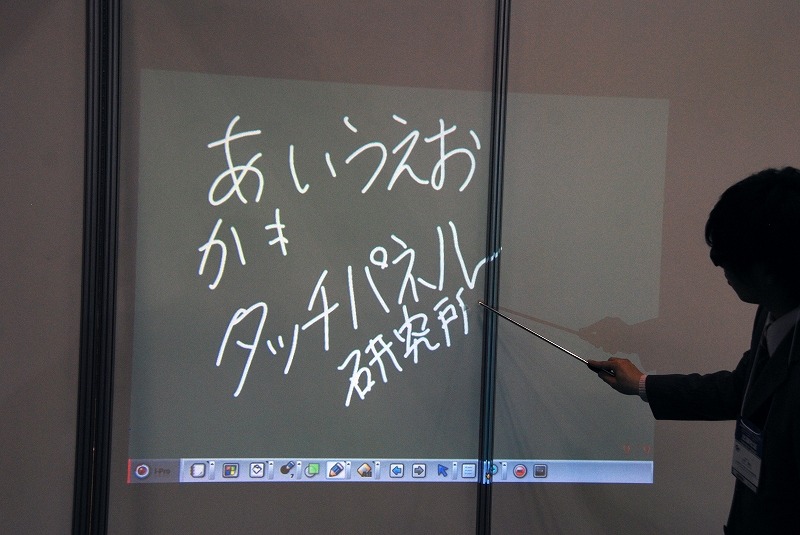 あいうえお
かき
タッチパネル
研究所
i-Pro